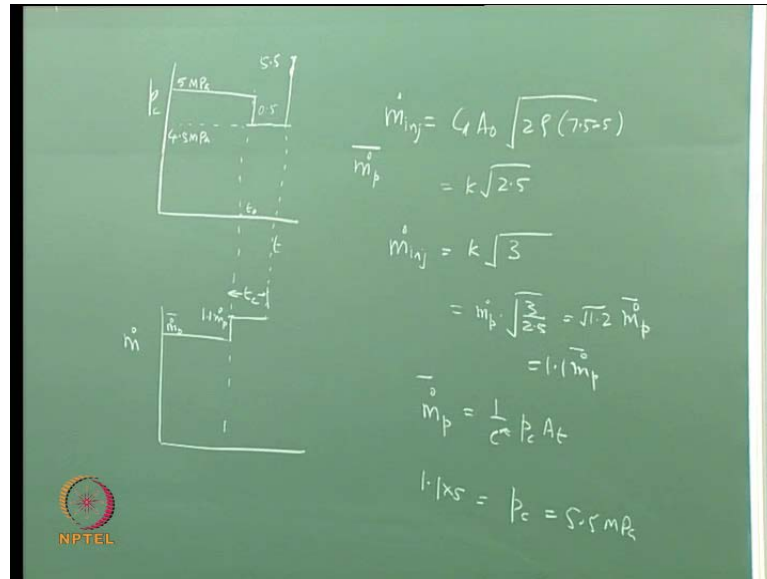 5.5
5 MPa
p_c
0.5
4.5 MPa
t_0
t
t_c
\overline{\dot{m}}_p
1.1 \dot{m}_p
\dot{m}
\dot{m}_{inj} = C_d A_0 \sqrt{2ρ(7.5-5)}
\overline{\dot{m}_p}
= k \sqrt{2.5}
\dot{m}_{inj} = k \sqrt{3}
= \dot{m}_p · \sqrt{\frac{3}{2.5}} = \sqrt{1.2} \overline{\dot{m}}_p
= 1.1 \overline{\dot{m}}_p
\overline{\dot{m}}_p = \frac{1}{c^*} p_c A_t
1.1×5 = p_c = 5.5 MPa
NPTEL